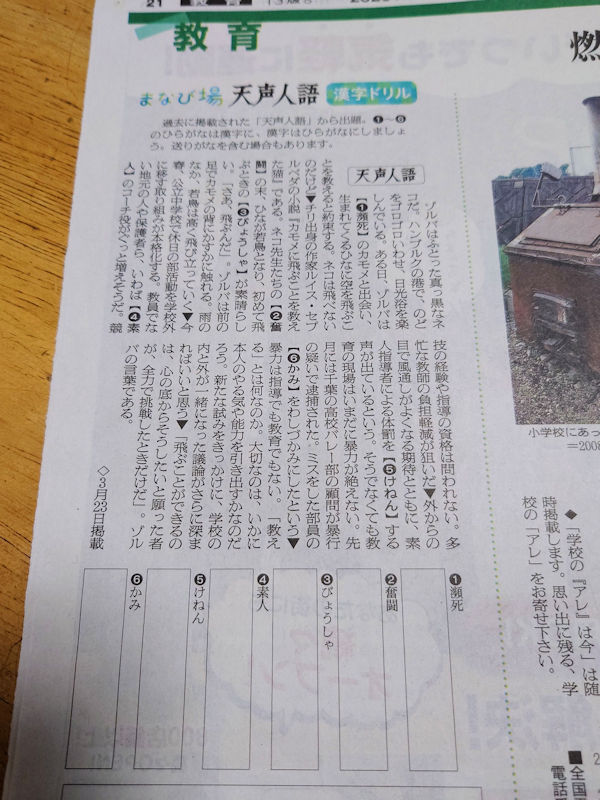 21
教育
まなび場 天声人語 漢字ドリル
過去に掲載された「天声人語」から出題。❶～❻
のひらがなは漢字に、漢字はひらがなにしましょ
う。送りがなを含む場合もあります。
天声人語
ゾルバはふとった真っ黒なネ
コだ。ハンブルクの港で、のど
をゴロゴロいわせ、日光浴を楽
しんでいる。ある日、ゾルバは
【❶瀕死】のカモメと出会い、
生まれてくるひなに空を飛ぶこ
とを教えると約束する。ネコは飛べない
のだけど▼チリ出身の作家ルイス・セプ
ルベダの小説『カモメに飛ぶことを教え
た猫』である。ネコ先生たちの【❷奮
闘】の末、ひなが若鳥となり、初めて飛
ぶときの【❸びょうしゃ】が素晴らし
い。「さあ、飛ぶんだ」。ゾルバは前の
足でカモメの背にかすかに触れる。雨の
なか、若鳥は高く飛び立っていく▼今
春、公立中学校で休日の部活動を学校外
に移す取り組みが本格化する。教員でな
い地元の人や保護者ら、いわば【❹素
人】のコーチ役がぐっと増えそうだ。競
技の経験や指導の資格は問われない。多
忙な教師の負担軽減が狙いだ▼外からの
目で風通しがよくなる期待とともに、素
人指導者による体罰を【❺けねん】する
声が出ているという。そうでなくても教
育の現場はいまだに暴力が絶えない。先
月には千葉の高校バレー部の顧問が暴行
の疑いで逮捕された。ミスをした部員の
【❻かみ】をわしづかみにしたという▼
暴力は指導でも教育でもない。「教え
る」とは何なのか。大切なのは、いかに
本人のやる気や能力を引き出すかなのだ
ろう。新たな試みをきっかけに、学校の
内と外が一緒になった議論がさらに深ま
ればいいと思う▼「飛ぶことができるの
は、心の底からそうしたいと願った者
が、全力で挑戦したときだけだ」。ゾル
バの言葉である。
◇3月23日掲載
❶瀕死
❷奮闘
❸びょうしゃ
❹素人
❺けねん
❻かみ
燃
小学校にあっ
＝2008
◆「学校の『アレ』は今」は随
時掲載します。思い出に残る、学
校の「アレ」をお寄せ下さい。
■全国
電話